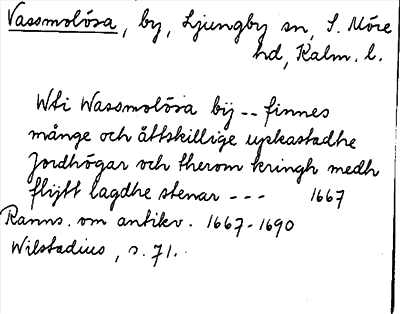 Vassmolösa, by, Ljungby sn, S. Möre
hd, Kalm. l.
Wti Wassmolösa bij -- finnes
månge och åttskillige upkastadhe
Jordhögar och therom kringh medh
flijtt lagdhe stenar --- 1667
Ranns. om antikv. 1667-1690
Wilstadius, s. 71.